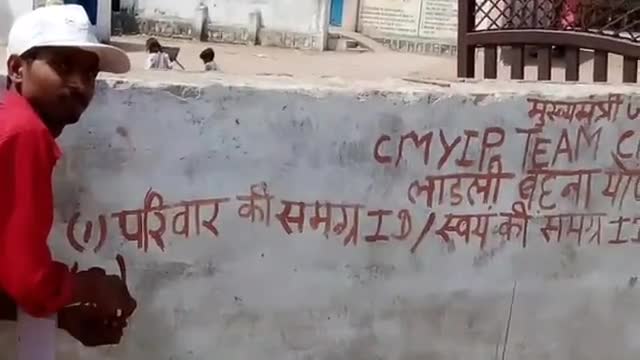 मुख्यमंत्री
CMYIP TEAM
लाडली बहना
(1) परिवार की समग्र ID/स्वयं की समग्र